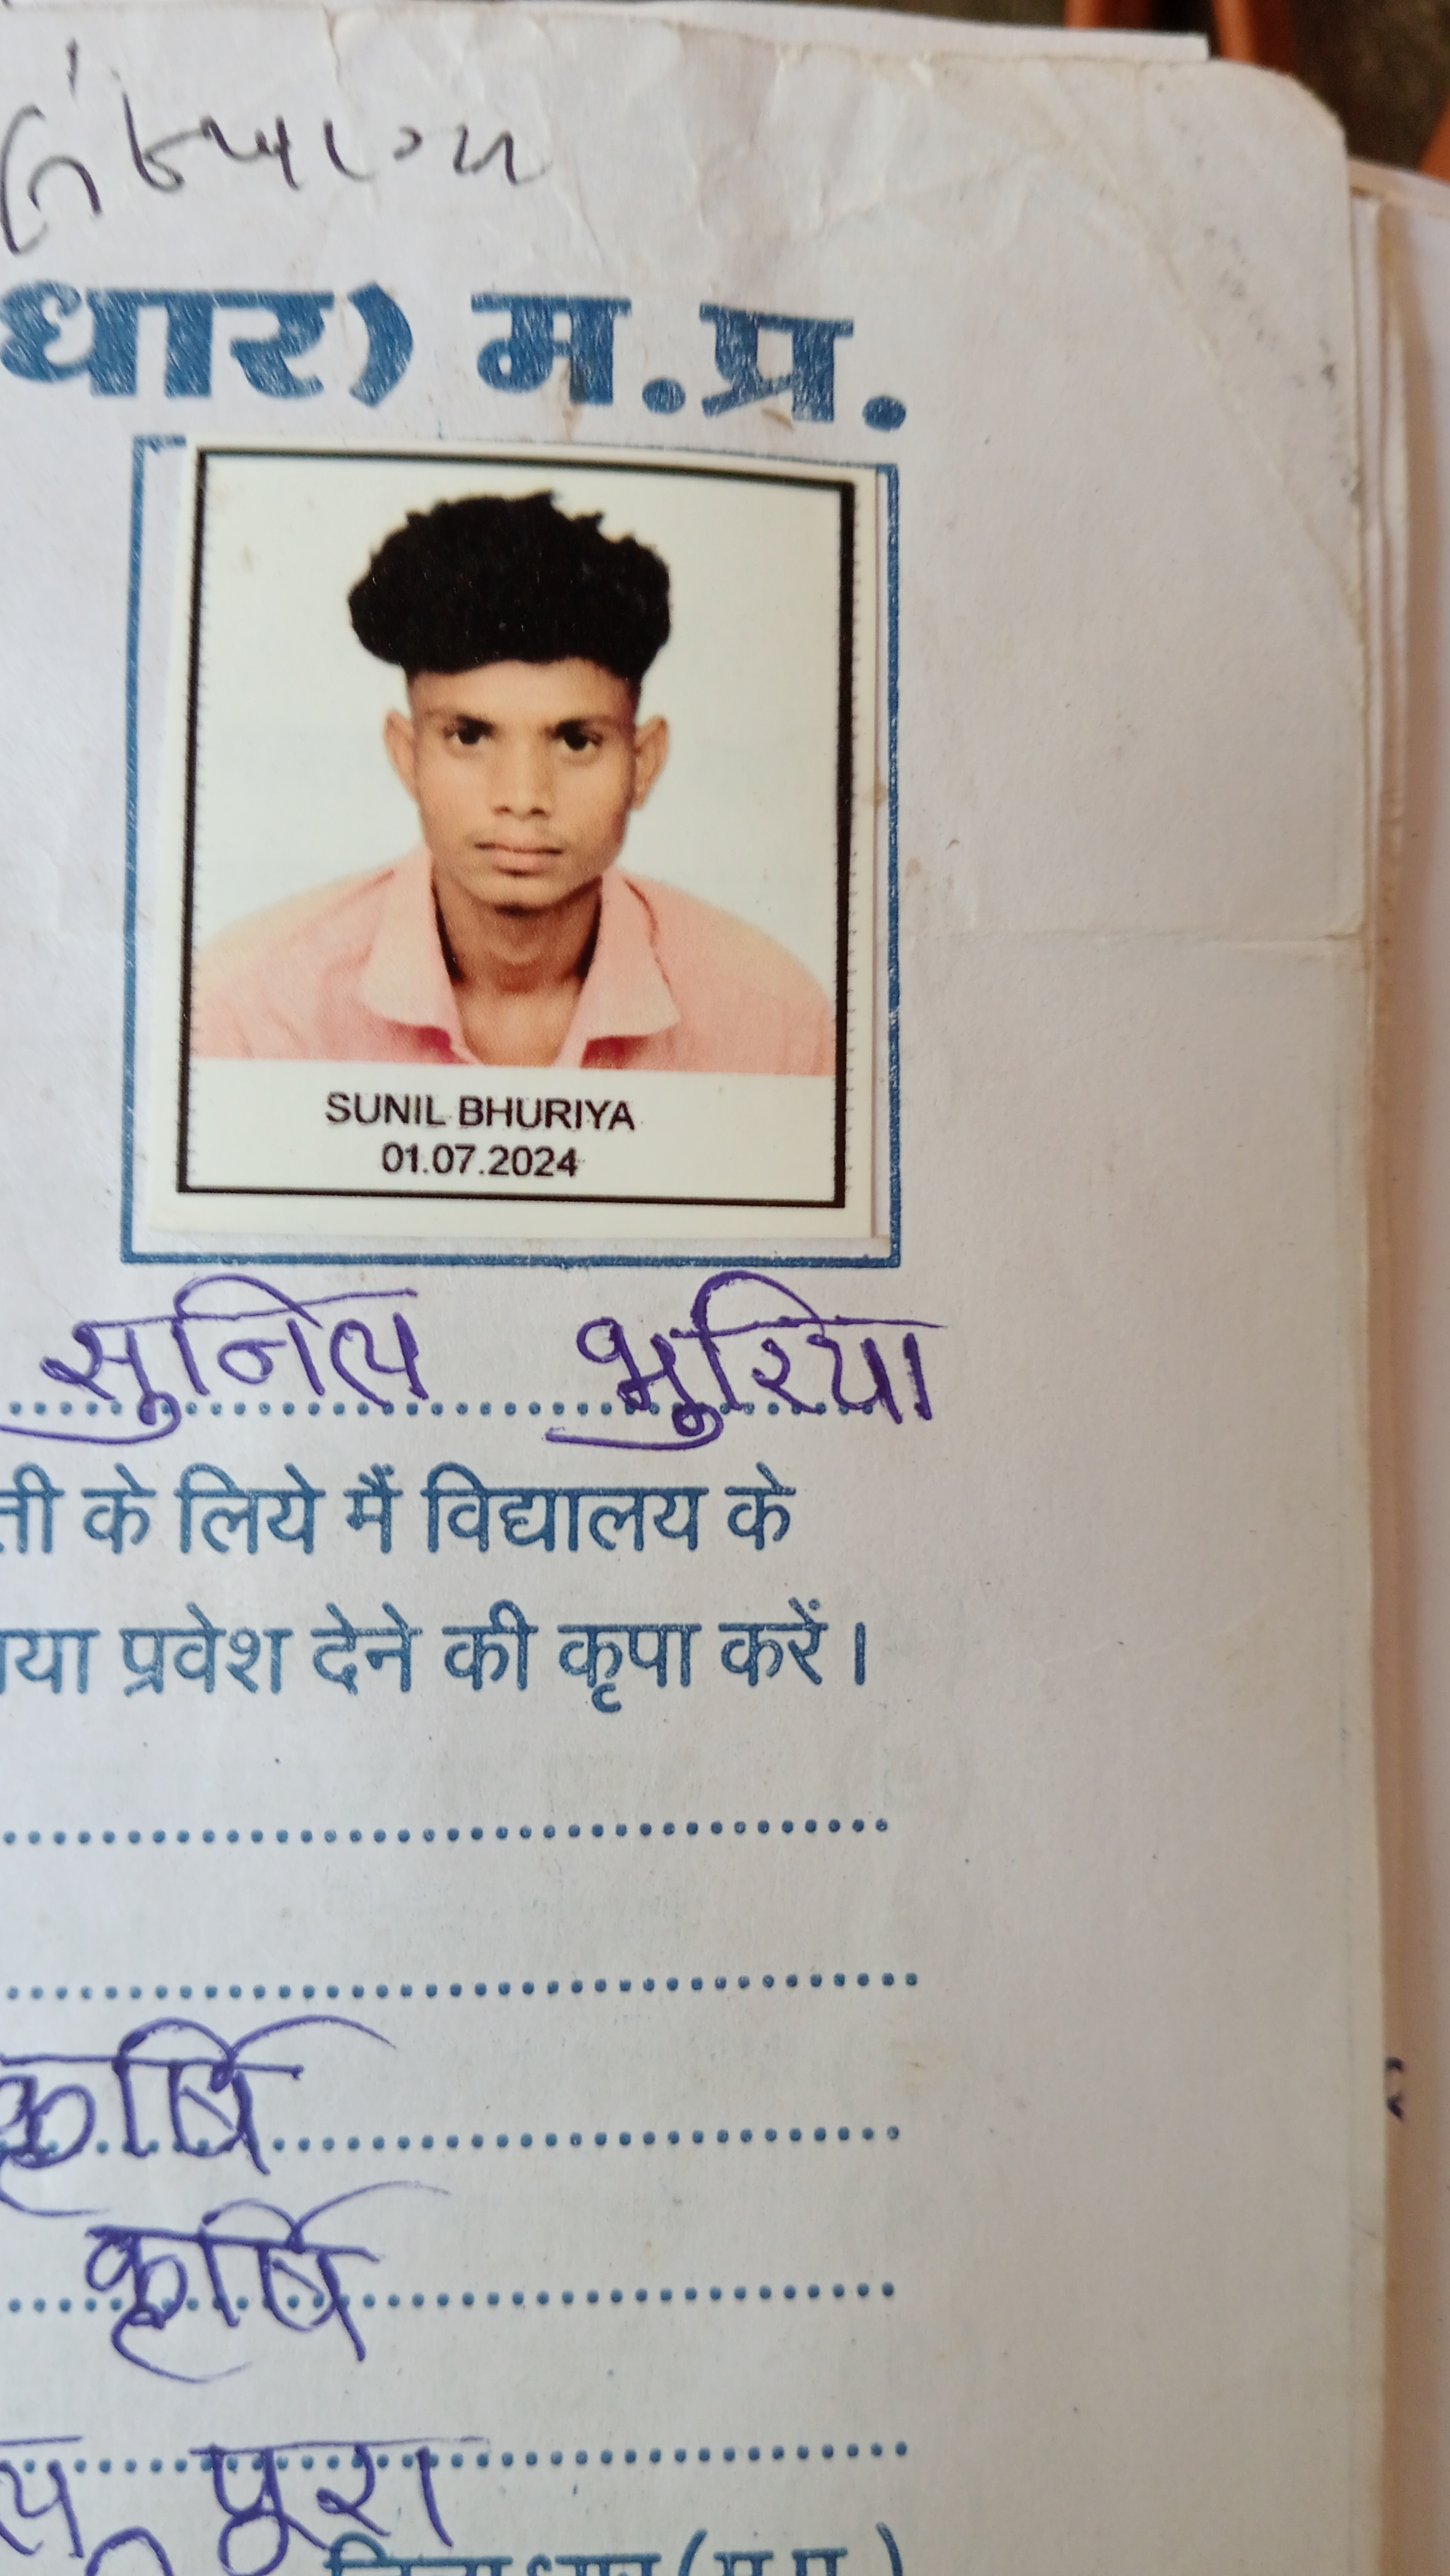 धार) म.प्र.
SUNIL BHURIYA
01.07.2024
सुनिल भुरिया
ती के लिये मैं विद्यालय के
या प्रवेश देने की कृपा करें।
कृर्षि
कृर्षि
पुरा